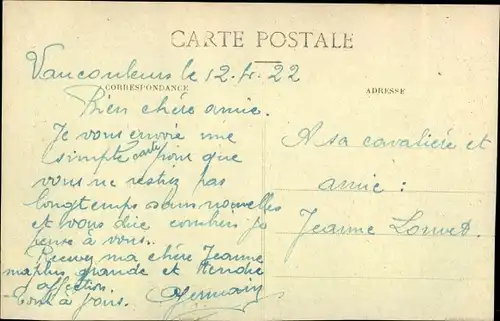 CARTE POSTALE
Vaucouleurs le 12. fr. 22
CORRESPONDANCE
ADRESSE
Bien chère amie.
Je vous envoie une
simple carte pour que
vous ne restiz pas
longtemps sans nouvelles
et vous dire combien je
pense à vous.
Recevez ma chère Jeanne
ma plus grande et tendre
affection.
Tout à vous.
Germain
A sa cavalière et
amie :
Jeanne Louvet.